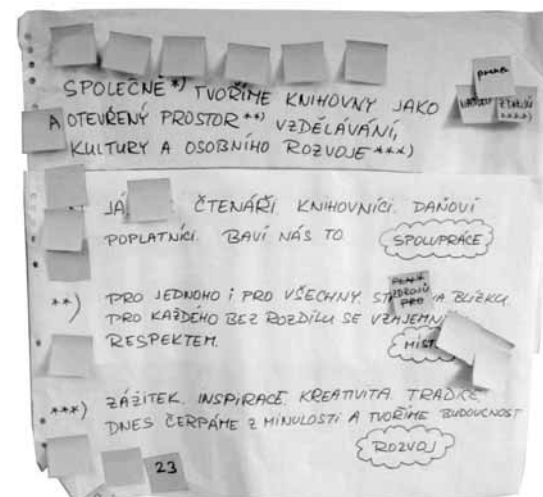 SPOLEČNĚ*) TVOŘÍME KNIHOVNY JAKO
A OTEVŘENÝ PROSTOR**) VZDĚLÁVÁNÍ,
KULTURY A OSOBNÍHO ROZVOJE***)
ZDROJŮ
****)
JÁ ČTENÁŘI. KNIHOVNÍCI. DAŇOVÍ
POPLATNÍCI. BAVÍ NÁS TO. SPOLUPRÁCE
**) PRO JEDNOHO I PRO VŠECHNY. A BLÍZKU.
ZDROJŮ
PRO
PRO KAŽDÉHO BEZ ROZDÍLU SE VZÁJEMN
RESPEKTEM. MÍST
***) ZÁŽITEK. INSPIRACE. KREATIVITA. TRADICE.
DNES ČERPÁME Z MINULOSTI A TVOŘÍME BUDOUCNOST
ROZVOJ
23